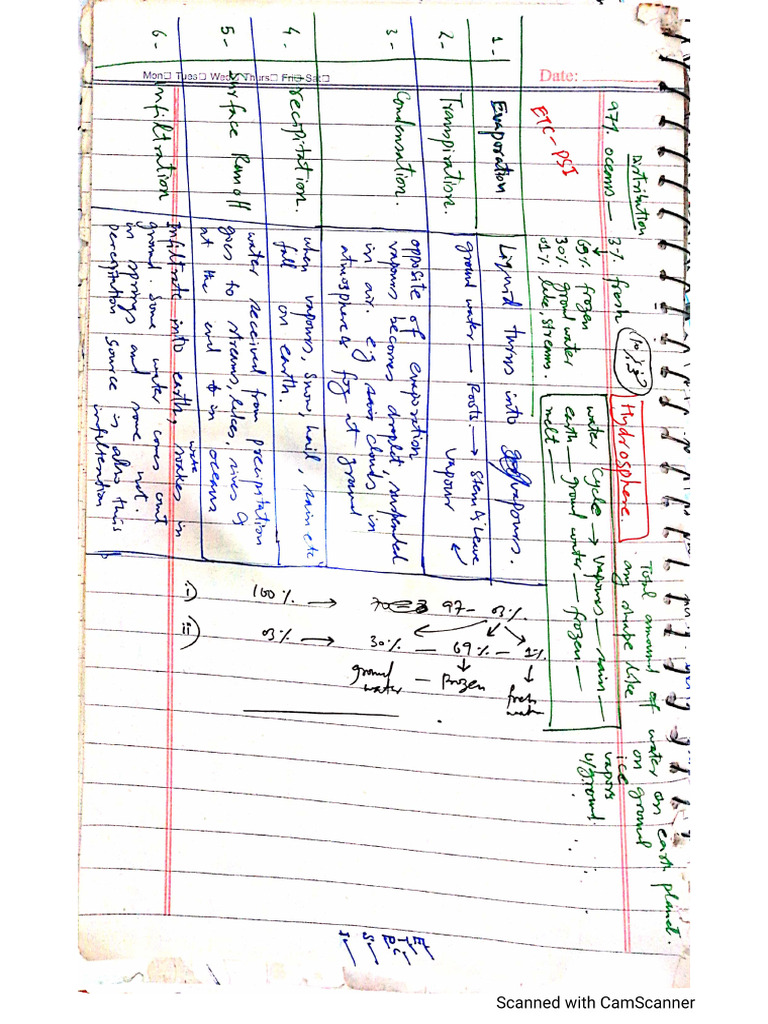 Hydrosphere.
Total amount of water on earth planet.
any shape like on ground
ice
vapors
u/ground.
Distribution
97% oceans — 3% fresh
69% frozen
30% ground water
01% lake, streams.
water cycle → vapours — rain —
earth — ground water — frozen —
melt —
ETC - PSI
Date:
Mon Tues Wed Thurs Fri Sat
1- Evaporation Liquid turns into vapours.
2- Transpiration. ground water — Roots. → Stem & Leave
vapour
3- Condensation. opposite of evaporation
vapours becomes droplet, suspended
in air. eg rain clouds in
atmosphere & fog at ground
4. Precipitation. when vapours, snow, hail, rain etc
fall on earth.
5- Surface Runoff water received from precipitation
goes to streams, lakes, rivers &
at the end in oceans
6- Infiltration Infiltrate into earth, soakes in
ground. Some water comes out
in springs and some not.
percipitation source is also this
infilteration
i) 100% → 97 - 03%
ii) 03% → 30% — 69% — 1%
ground water — Frozen fresh water
E
T
C
P
S
I
Scanned with CamScanner